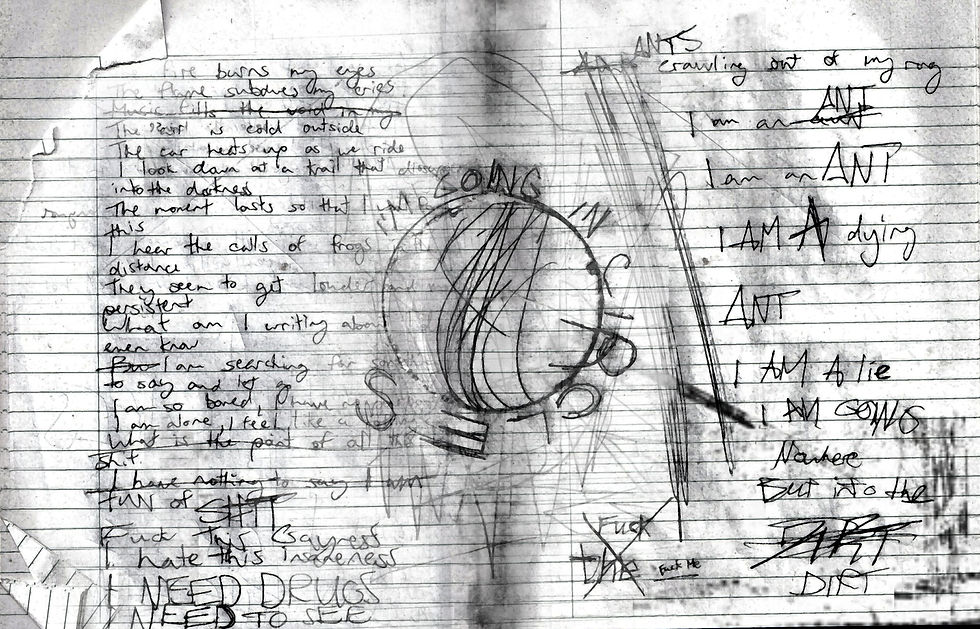 fire burns my eyes
The flame subdues my cries
Music fills the void in my
The air is cold outside
The car heats up as we ride
I look down at a trail that
into the darkness
The moment lasts so that I
this
I hear the calls of frogs in the
distance
They seem to get louder and
persistent
What am I writing about
even know
But I am searching for
to say and let go
I am so bored, I have
I am alone, I feel like a
What is the point of all this
shit
I have nothing to say I am
fuN of SHIT
Fuck This Gayness
I hate this Insaneness
I NEED DRUGS
I NEED TO SEE
GOING IN CIRCLES
ANTS
crawling out of my rug
ANT
I am an aunt
I am an ANT
I AM A dying
ANT
I AM A lie
I AM GOING
Nowhere
But into the
DIRT
DIRT
Fuck
the
Fuck Me